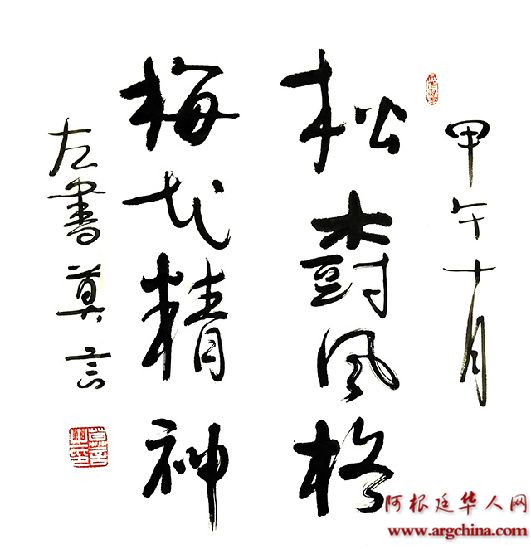 甲午十月
松樹風格
梅花精神
左書莫言
阿根廷华人网
www.argchina.com